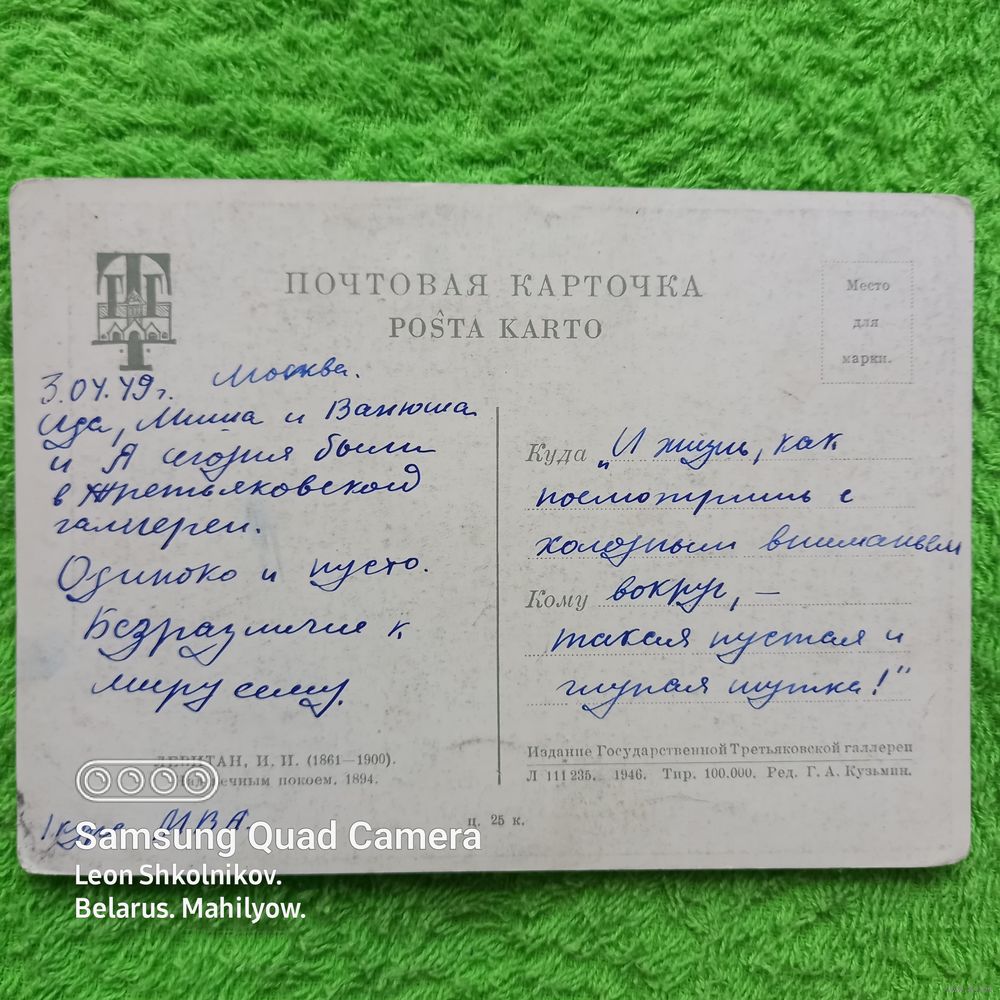 ПОЧТОВАЯ КАРТОЧКА
POŜTA KARTO
Место
для
марки.
3.04.49г. Москва.
Ида, Миша и Ванюша
и Я сегодня были
в Третьяковской
галлереи.
Одиноко и пусто.
Безразличие к
миру сему.
Куда „И жизнь, как
посмотришь с
холодным вниманьем
Кому вокруг, —
такая пустая и
глупая шутка!"
ЛЕВИТАН, И. И. (1861—1900).
Над вечным покоем. 1894.
Издание Государственной Третьяковской галлереи
Л 111235. 1946. Тир. 100.000. Ред. Г. А. Кузьмин.
ц. 25 к.
1 курс МВА.
Samsung Quad Camera
Leon Shkolnikov.
Belarus. Mahilyow.